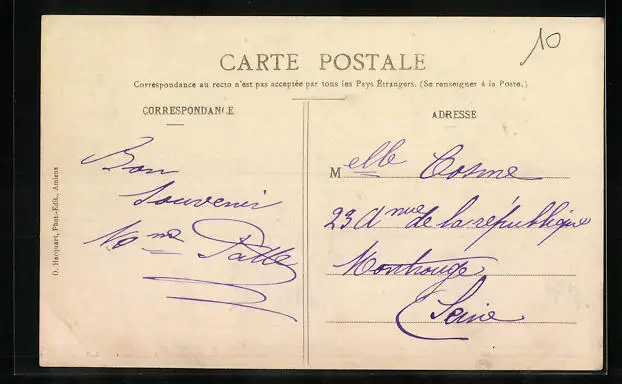 10
CARTE POSTALE
Correspondance au recto n'est pas acceptée par tous les Pays Étrangers. (Se renseigner à la Poste.)
CORRESPONDANCE
Bon
Souvenir
ADRESSE
Melle Cosme
23 Anue de la république
Montrouge
Seine
O. Hacquart, Phot.-Edit., Amiens